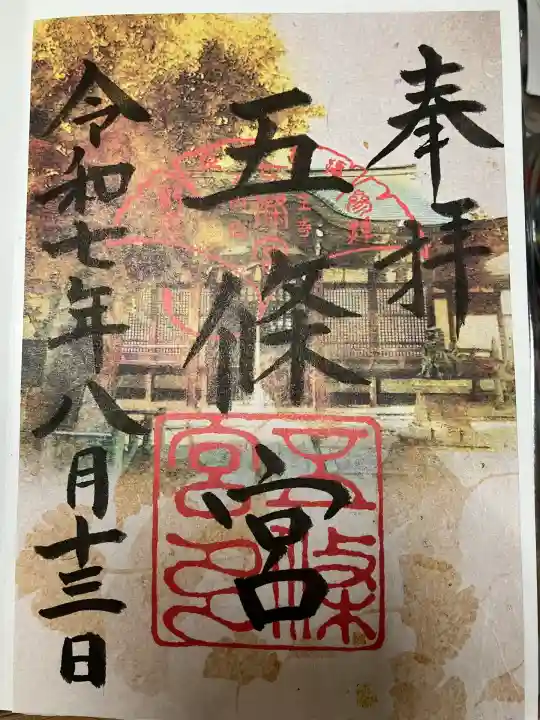 奉拝
五條宮
令和七年八月十三日
五條宮印